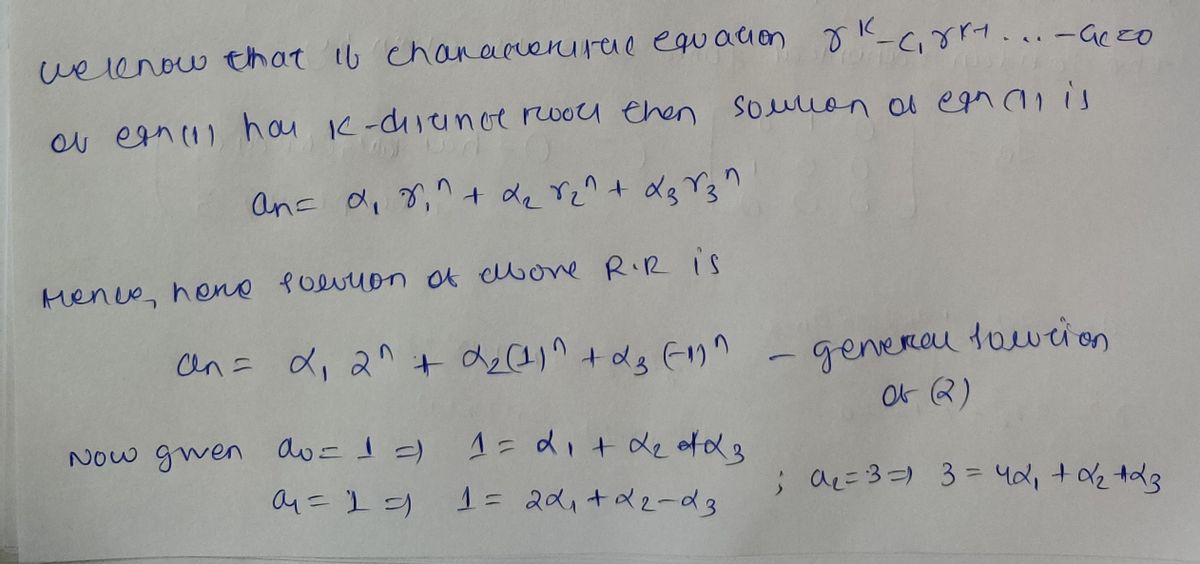 we know that if characteristic equation r^k - c₁ r^k-1 ... - ck = 0
of eqn (1) has k-distinct roots then solution of eqn (1) is
an = α₁ r₁^n + α₂ r₂^n + α₃ r₃^n
Hence, here solution of above R.R is
an = α₁ 2^n + α₂ (1)^n + α₃ (-1)^n - general solution
of (2)
Now given a₀ = 1 ⇒ 1 = α₁ + α₂ + α₃
a₁ = 1 ⇒ 1 = 2α₁ + α₂ - α₃ ; a₂ = 3 ⇒ 3 = 4α₁ + α₂ + α₃